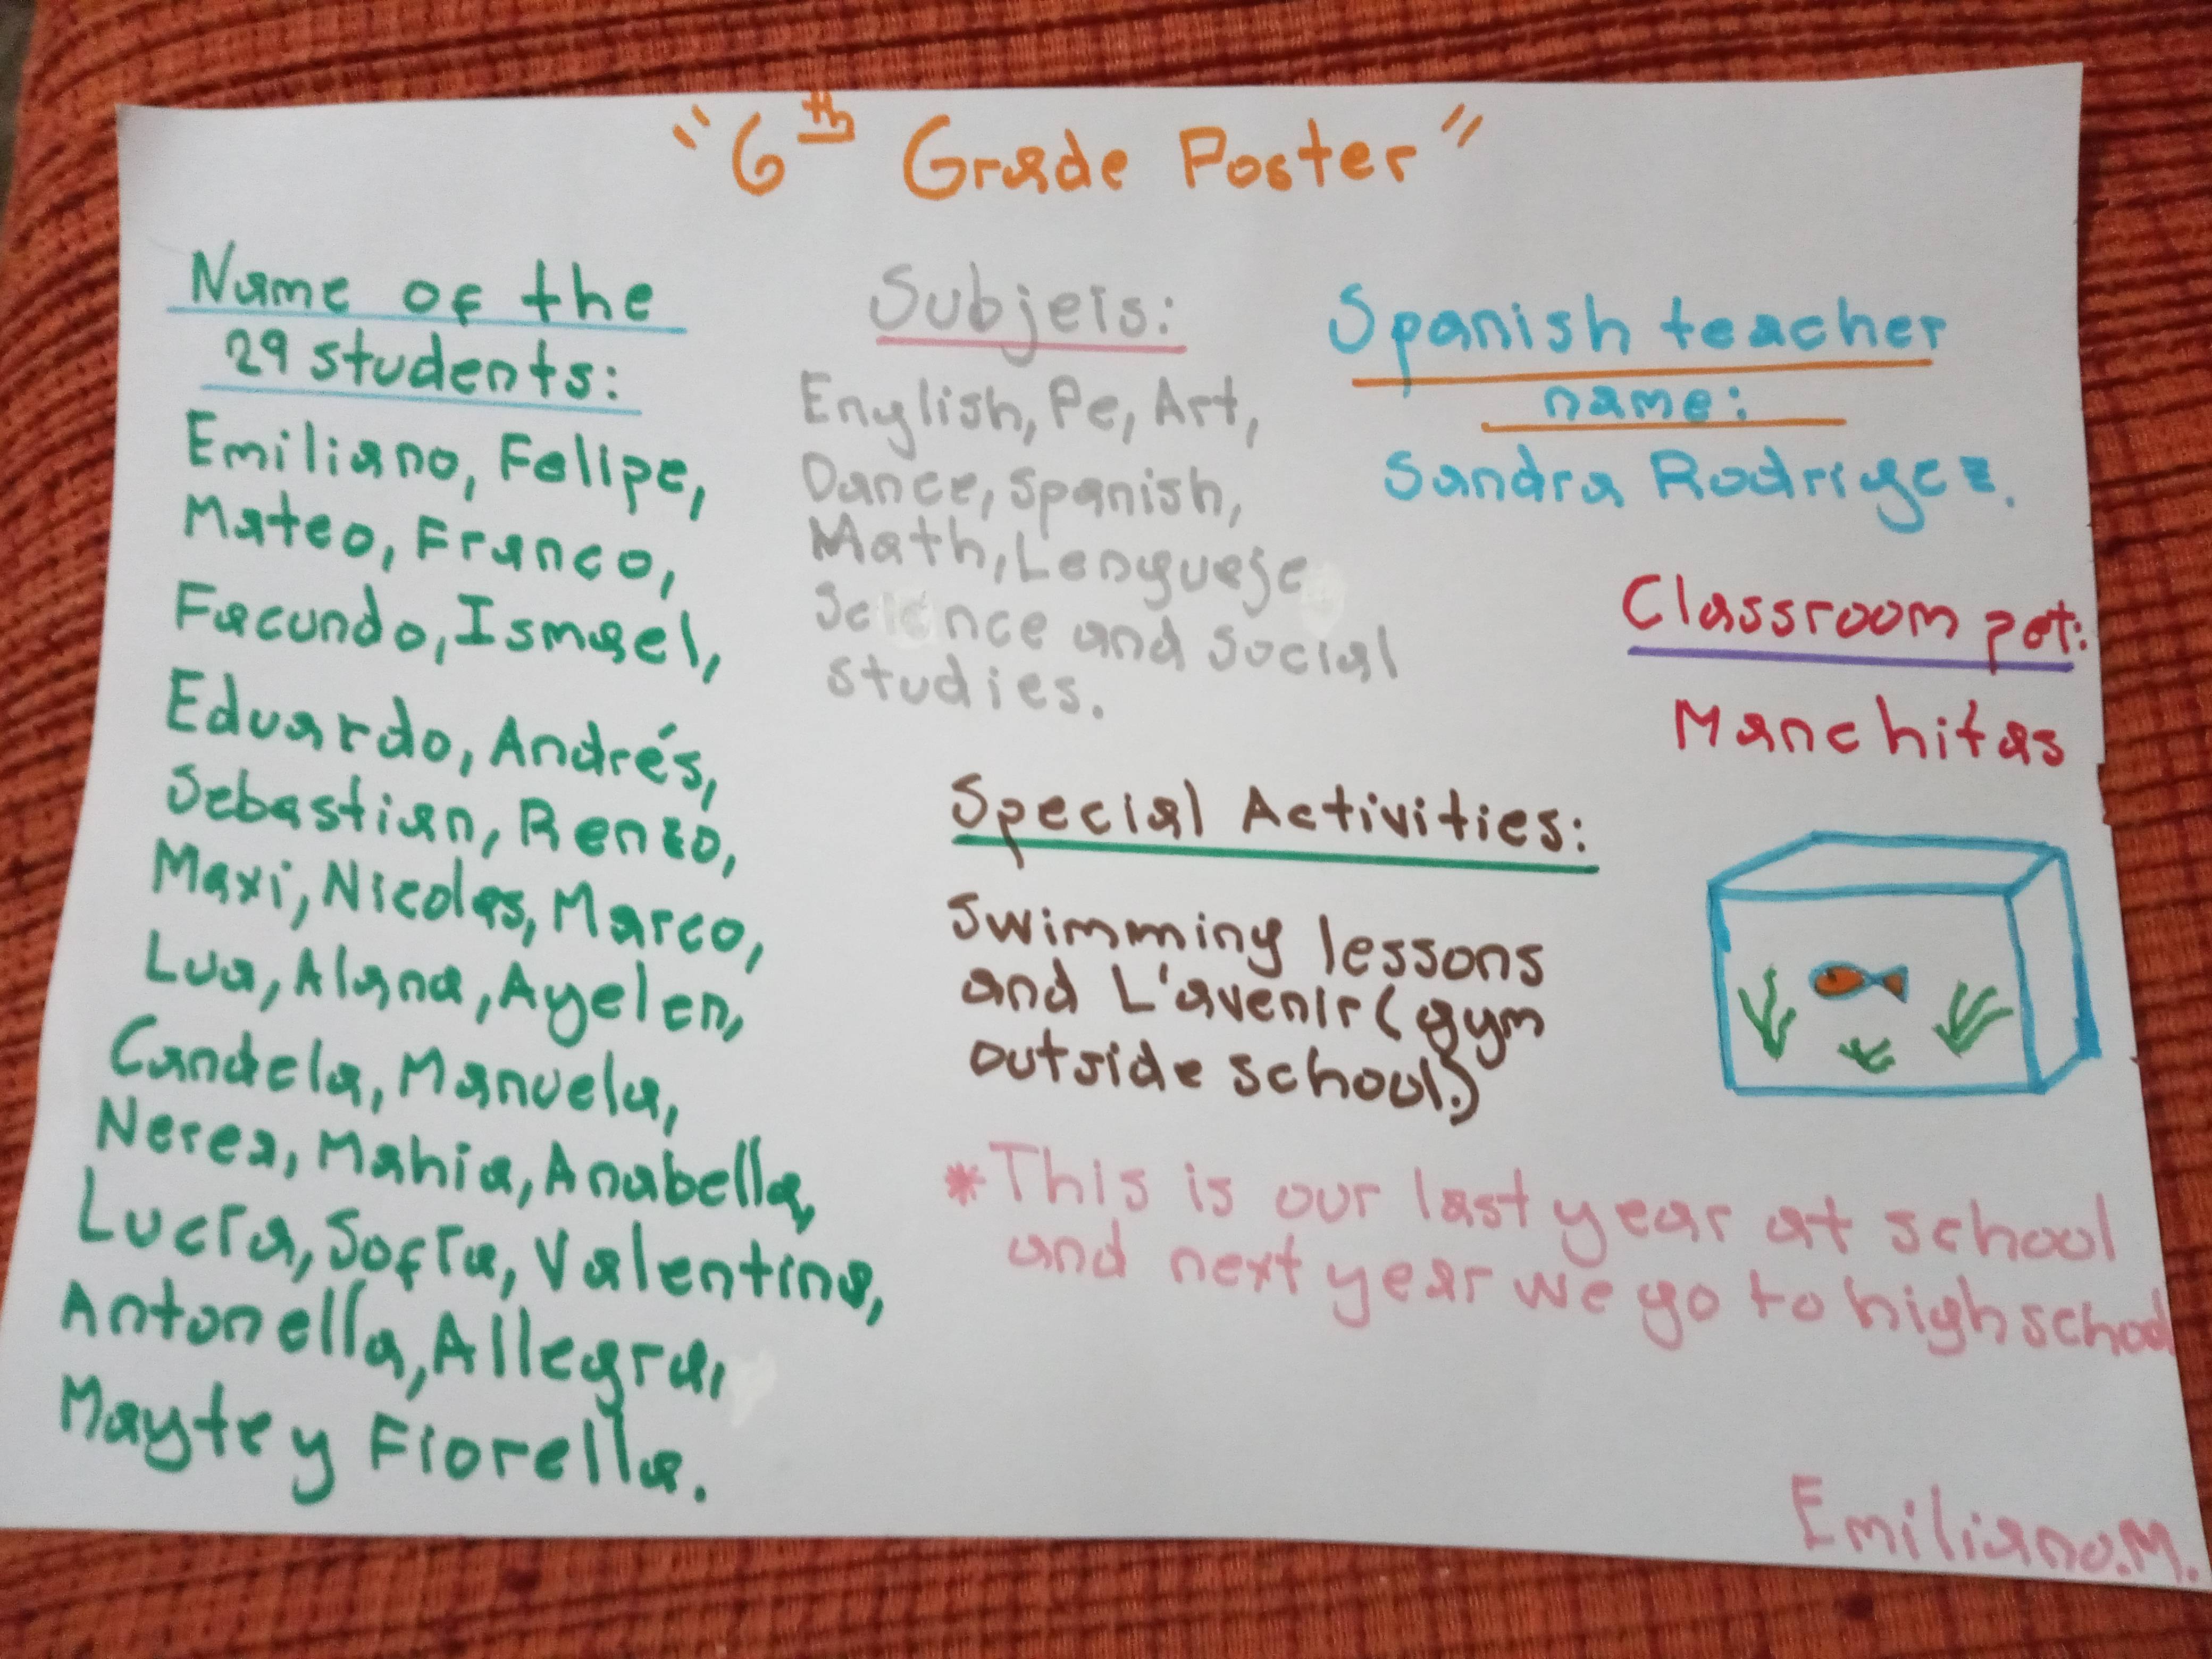 "6th Grade Poster"
Name of the
29 students:
Emiliano, Felipe,
Mateo, Franco,
Facundo, Ismael,
Eduardo, Andrés,
Sebastian, Renzo,
Maxi, Nicolas, Marco,
Lua, Alana, Ayelen,
Candela, Manuela,
Nerea, Mahia, Anabella,
Lucía, Sofía, Valentina,
Antonella, Allegra,
Mayte y Fiorella.
Subjets:
English, Pe, Art,
Dance, Spanish,
Math, Lenguege
Science and social
studies.
Spanish teacher
name:
Sandra Rodrigez.
Classroom pet:
Manchitas
Special Activities:
Swimming lessons
and L'avenir (gym
outside school.)
*This is our last year at school
and next year we go to high school
Emiliano.M.